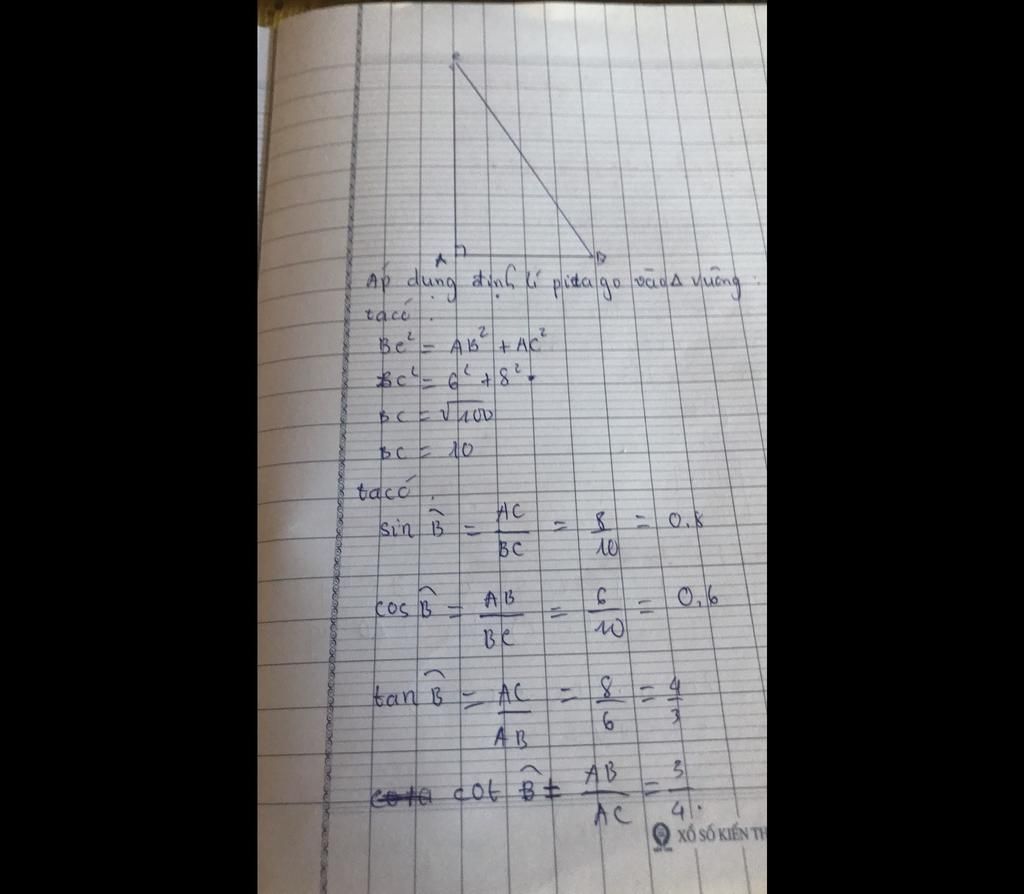 C
A B
Áp dụng định lí pitago vào Δ vuông :
ta có :
BC² = AB² + AC²
BC² = 6² + 8²
BC = √100
BC = 10
ta có :
sin B̂ = AC/BC = 8/10 = 0,8
cos B̂ = AB/BC = 6/10 = 0,6
tan B̂ = AC/AB = 8/6 = 4/3
cot B̂ = AB/AC = 3/4.
XỔ SỐ KIẾN TH